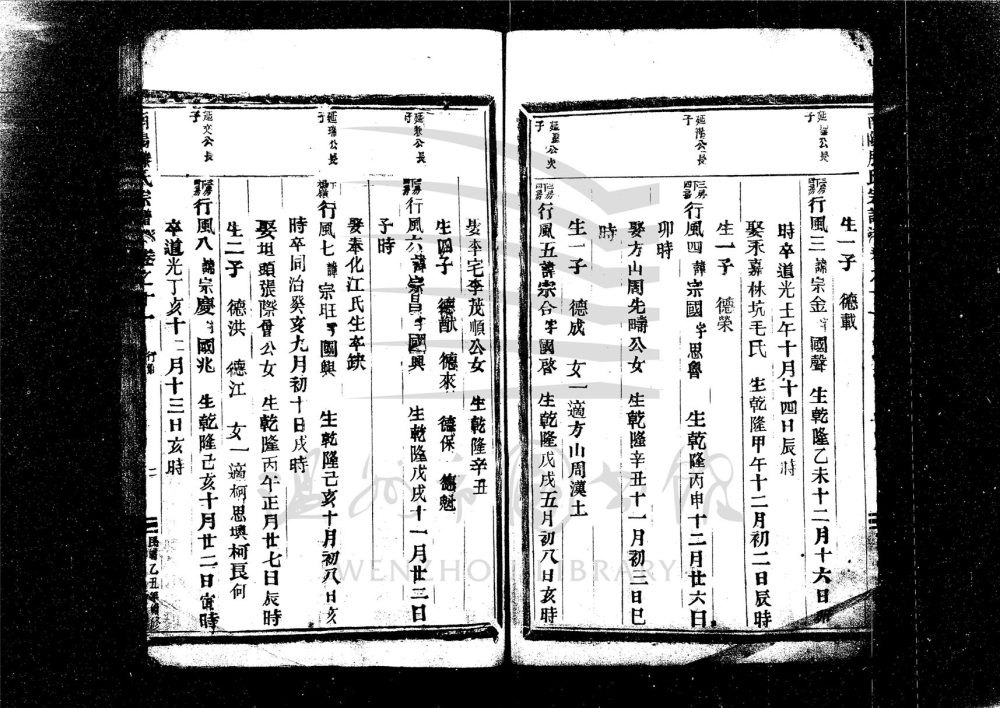 生一子 德載
延 公長子
行風三 諱宗金 字國聲 生乾隆乙未十二月十六日
時卒道光壬午十月十四日辰時
娶永嘉林坑毛氏 生乾隆甲午十二月初二日辰時
生一子 德榮
延 公長子
行風四 諱宗國 字思魯 生乾隆丙申十二月廿六日
卯時
娶方山周先疇公女 生乾隆辛丑十一月初三日巳
時
生一子 德成 女一適方山周漢土
延 公次子
行風五 諱宗合 字國啓 生乾隆戊戌五月初八日亥時
娶李宅李茂順公女 生乾隆辛丑
生四子 德猷 德來 德保 德魁
延 公長子
行風六 諱宗昌 字國興 生乾隆戊戌十一月廿三日
子時
娶泰化江氏生卒缺
延瑞公長子
行風七 諱宗旺 字國興 生乾隆己亥十月初八日亥
時卒同治癸亥九月初十日戌時
娶垣頭張際會公女 生乾隆丙午正月廿七日辰時
生二子 德洪 德江 女一適柯思墺柯良何
延文公長子
行風八 諱宗慶 字國兆 生乾隆己亥十月廿二日寅時
卒道光丁亥十二月十三日亥時
氏宗譜 卷之十一 行第 二 民國乙丑
WENZHOU LIBRARY